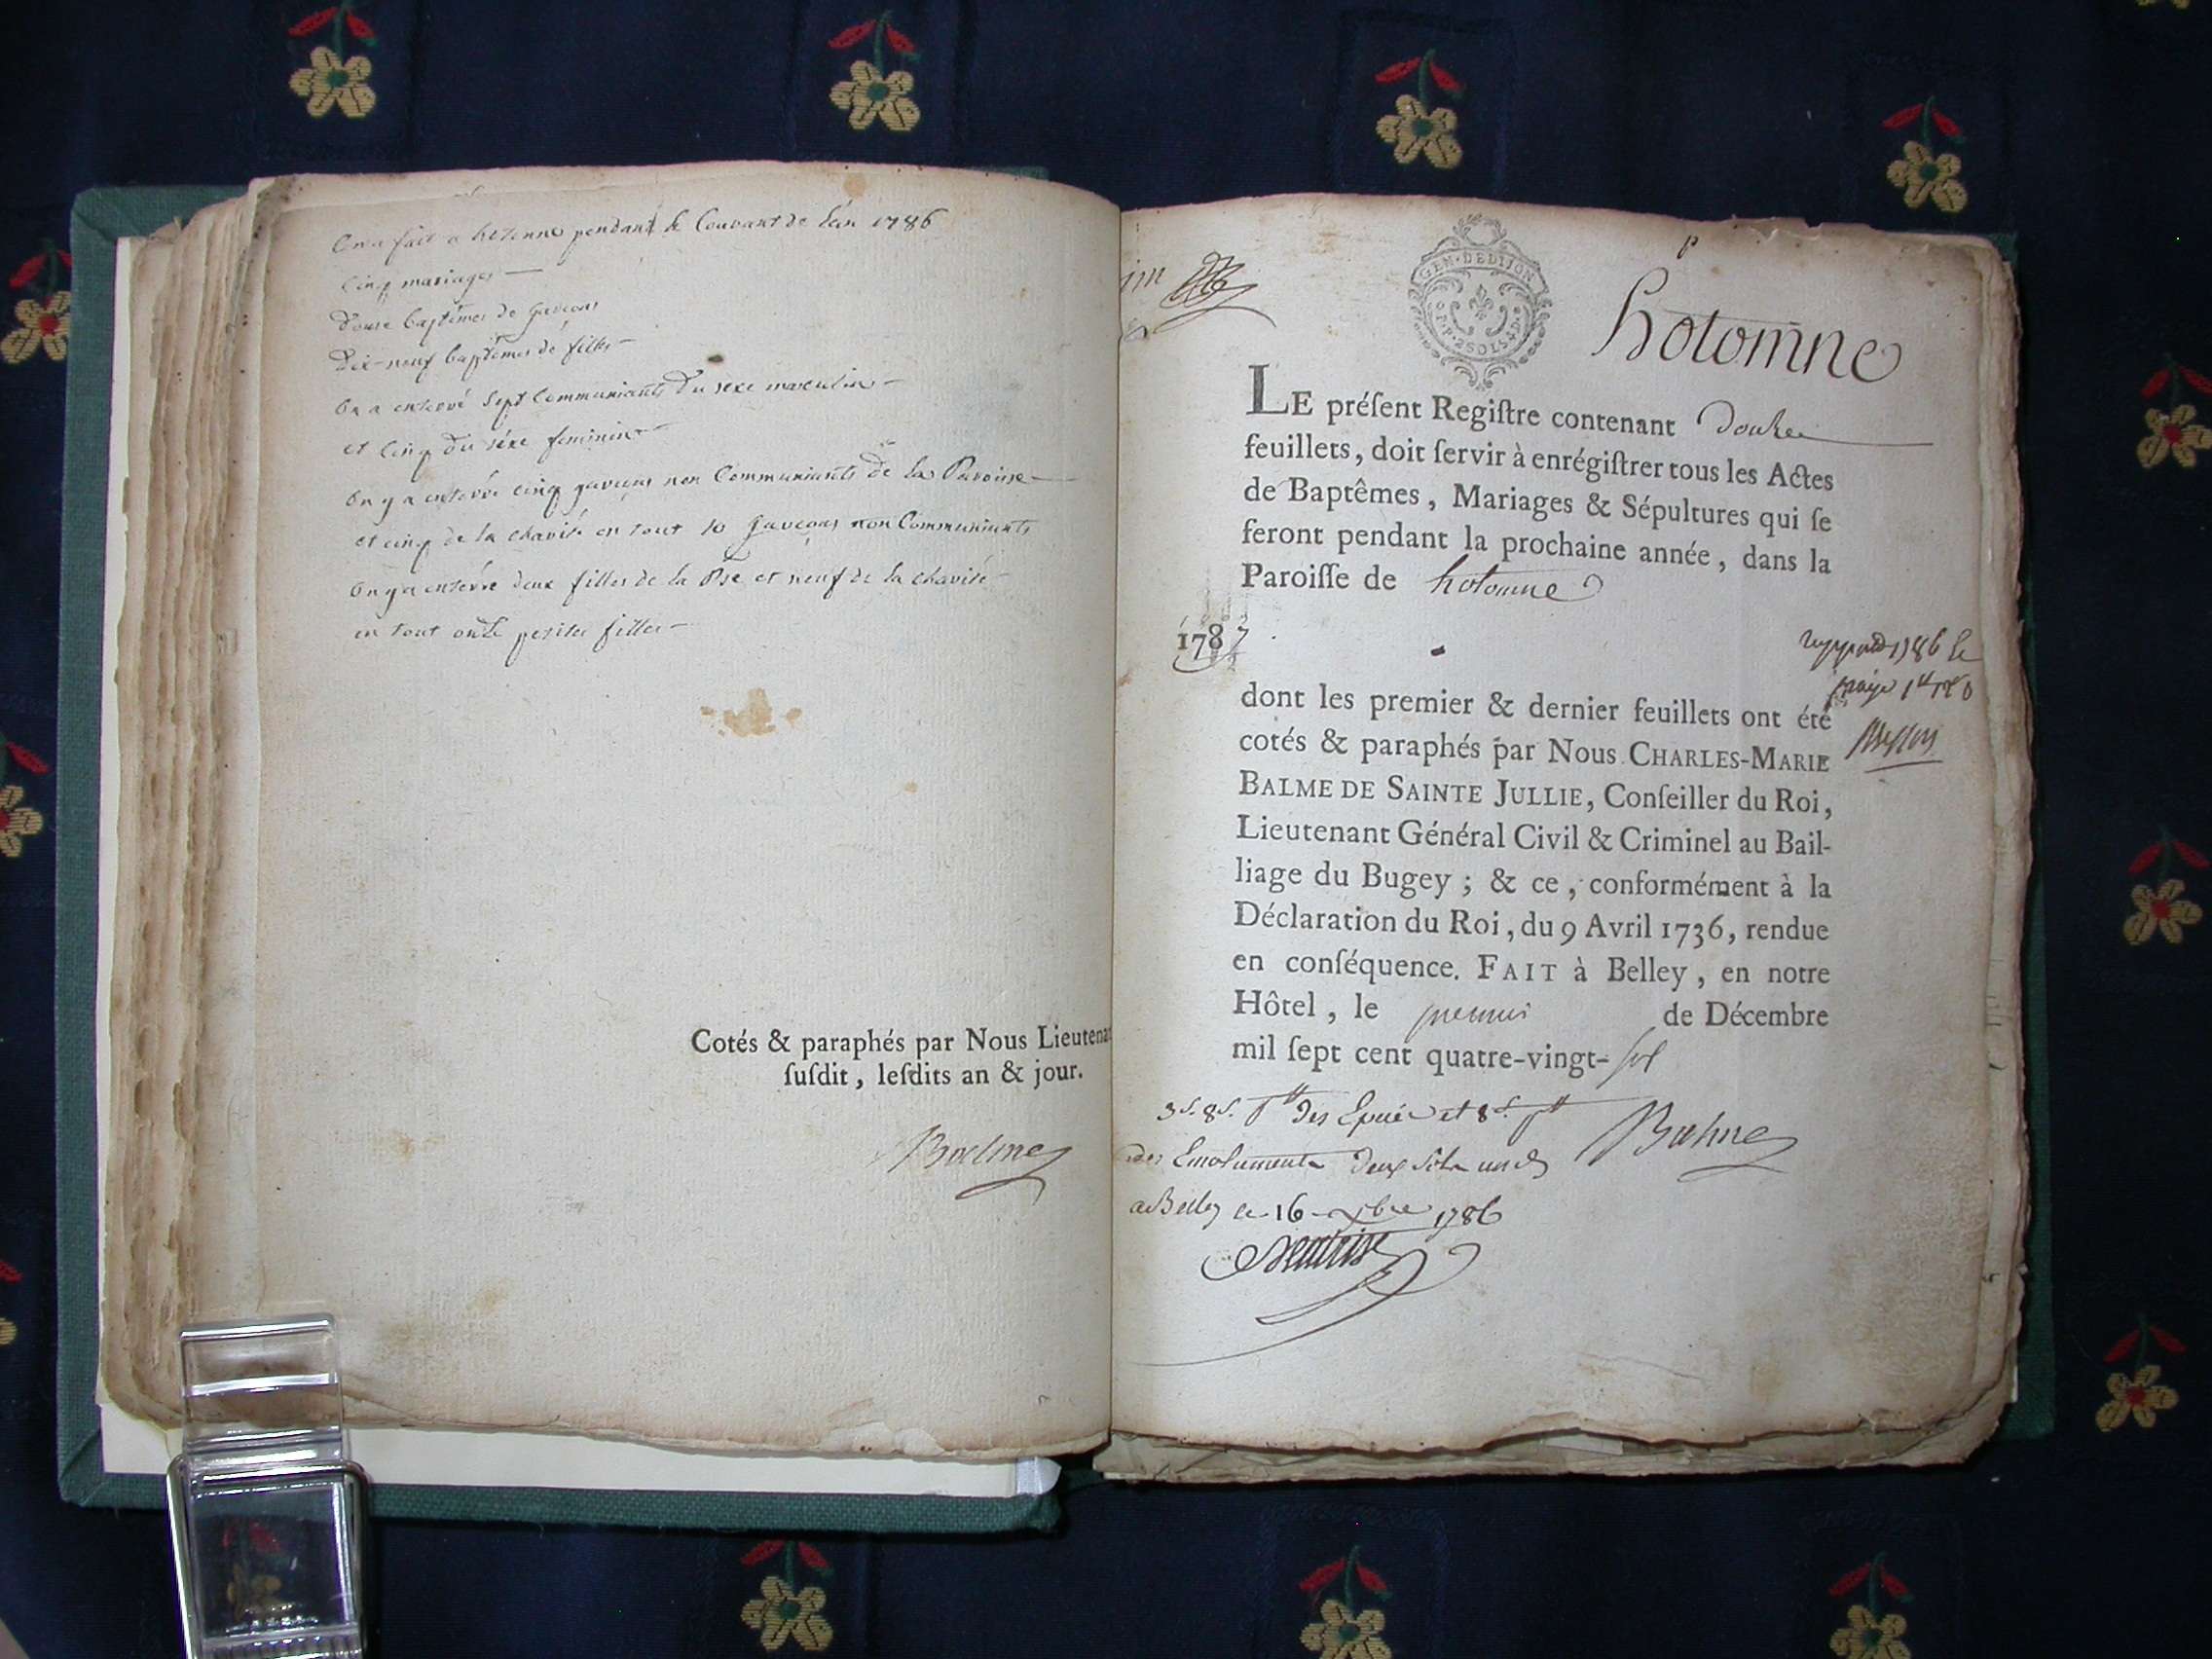 On a fait a hotonne pendant le Courant de l'an 1786
Cinq mariages —
Douze baptêmes de garcons
Dix-neuf baptêmes de filles —
On a enterré sept Communiants du sexe masculin —
et cinq du séxe feminin —
on y a enterré cinq garçons non Communiants de la Paroisse —
et cinq de la charité en tout 10 garcons non Communiants
on y a enterré deux filles de la Pse et neuf de la charité —
en tout onze petites filles —
Cotés & paraphés par Nous Lieutena
ſuſdit, leſdits an & jour.
Balme
GEN·DEDIJON
hotomne
LE préſent Regiſtre contenant Douze
feuillets, doit ſervir à enrégiſtrer tous les Actes
de Baptêmes, Mariages & Sépultures qui ſe
feront pendant la prochaine année, dans la
Paroiſſe de hotomne
1787
1786 le
dont les premier & dernier feuillets ont été
cotés & paraphés par Nous CHARLES-MARIE
BALME DE SAINTE JULLIE, Conſeiller du Roi,
Lieutenant Général Civil & Criminel au Bail-
liage du Bugey ; & ce, conformément à la
Déclaration du Roi, du 9 Avril 1736, rendue
en conſéquence. FAIT à Belley, en notre
Hôtel, le premier de Décembre
mil ſept cent quatre-vingt-six
3s. 8d. des Epices et 8s.
des Emoluments deux sols un d
Balme
a Belley ce 16 xbre 1786